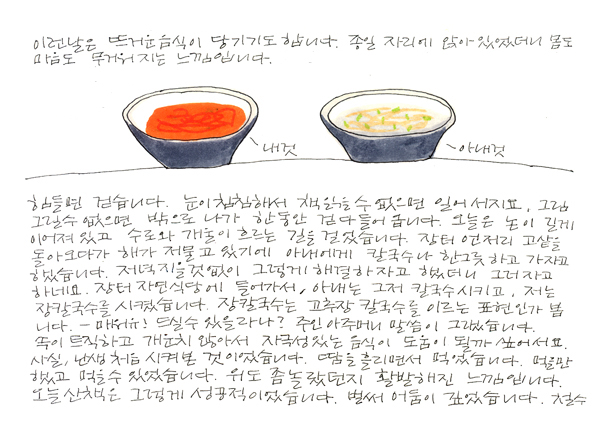 이런날은 뜨거운음식이 당기기도 합니다. 종일 자리에 앉아있었더니 몸도
마음도 무거워지는 느낌입니다.
내것
아내것
힘들면 걷습니다. 눈이침침해서 책읽을수없으면 일어서지요. 그림
그릴수 없으면 밖으로 나가 한동안 걷다들어 옵니다. 오늘은 논이 길게
이어져있고 수로와 개울이 흐르는 길을 걸었습니다. 장터 언저리 고샅을
돌아오다가 해가 저물고 있기에 아내에게 칼국수나 한그릇하고 가자고
했습니다. 저녁지을것없이 그렇게 해결하자고 했더니 그러자고
하네요. 장터 자연식당에 들어가서, 아내는 그저 칼국수시키고, 저는
장칼국수를 시켰습니다. 장칼국수는 고추장 칼국수를 이르는 표현인가 봅
니다. - 매워유! 드실수 있을라나? 주인아주머니 말씀이 그랬습니다.
속이 트직하고 개운치 않아서 자극성있는 음식이 도움이 될까 싶어서요.
사실, 난생처음 시켜본 것이었습니다. 땀을 흘리면서 먹었습니다. 먹을만
했고 먹을수 있었습니다. 위도 좀놀랐던지 활발해진 느낌입니다.
오늘산책은 그렇게 성공적이었습니다. 벌써 어둠이 깊었습니다. 철수